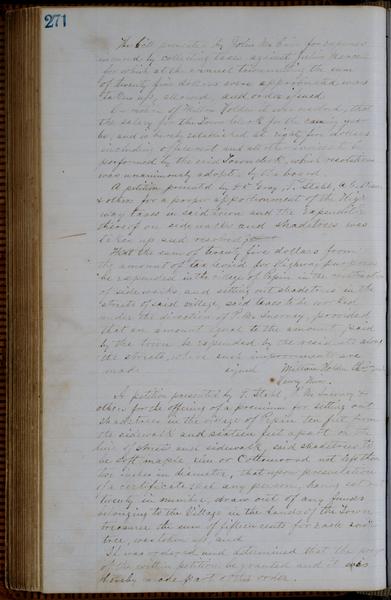 271
The bill presented by John for expenses
incurred by collecting taxes against
for which at the annual town meeting the sum
of twenty five dollars were appropriated was
taken up, allowed, and ordered paid.
On motion of William Holden it was resolved, that
the salary for the Town Clerk for the coming year
be, and is hereby established at eight five dollars
including office rent and all other services to be
performed by the said Town clerk, which resolution
was unanimously adopted by the board
A petition presented by Gray, T. Stahl,
& others for a proper apportionment of the High
way taxes in said Town and the expenditure
thereof on sidewalks and shadetrees was
taken up and resolved
That the sum of twenty five dollars from
the amount of tax levied for highway purposes
be expended in the village of Pepin in the construction
of sidewalks and setting out shadetrees in the
streets of said village, said taxes to be worked
under the direction of provided
that an amount equal to the amount, paid
by the town be expended by the residents along
the streets, where such improvements are
made signed William Holden
Henry
A petition presented by T. Stahl, &
others for the offering of a premium for setting out
shadetrees in the village of Pepin ten feet from
the sidewalk and sixteen feet apart on the
line of street and sidewalk, said shadetrees to
be soft maple, elm or Cottonwood not less than
two inches in diameter, that upon presentation
of a certificate that any person, having set out
twenty in number, draw out of any funds
belonging to the Village in the hands of the Town
treasurer the sum of fifteen cents for each such
tree, was taken up, and
It was ordered and determined that the
of the within petition be granted and it was
thereby made part of this order.